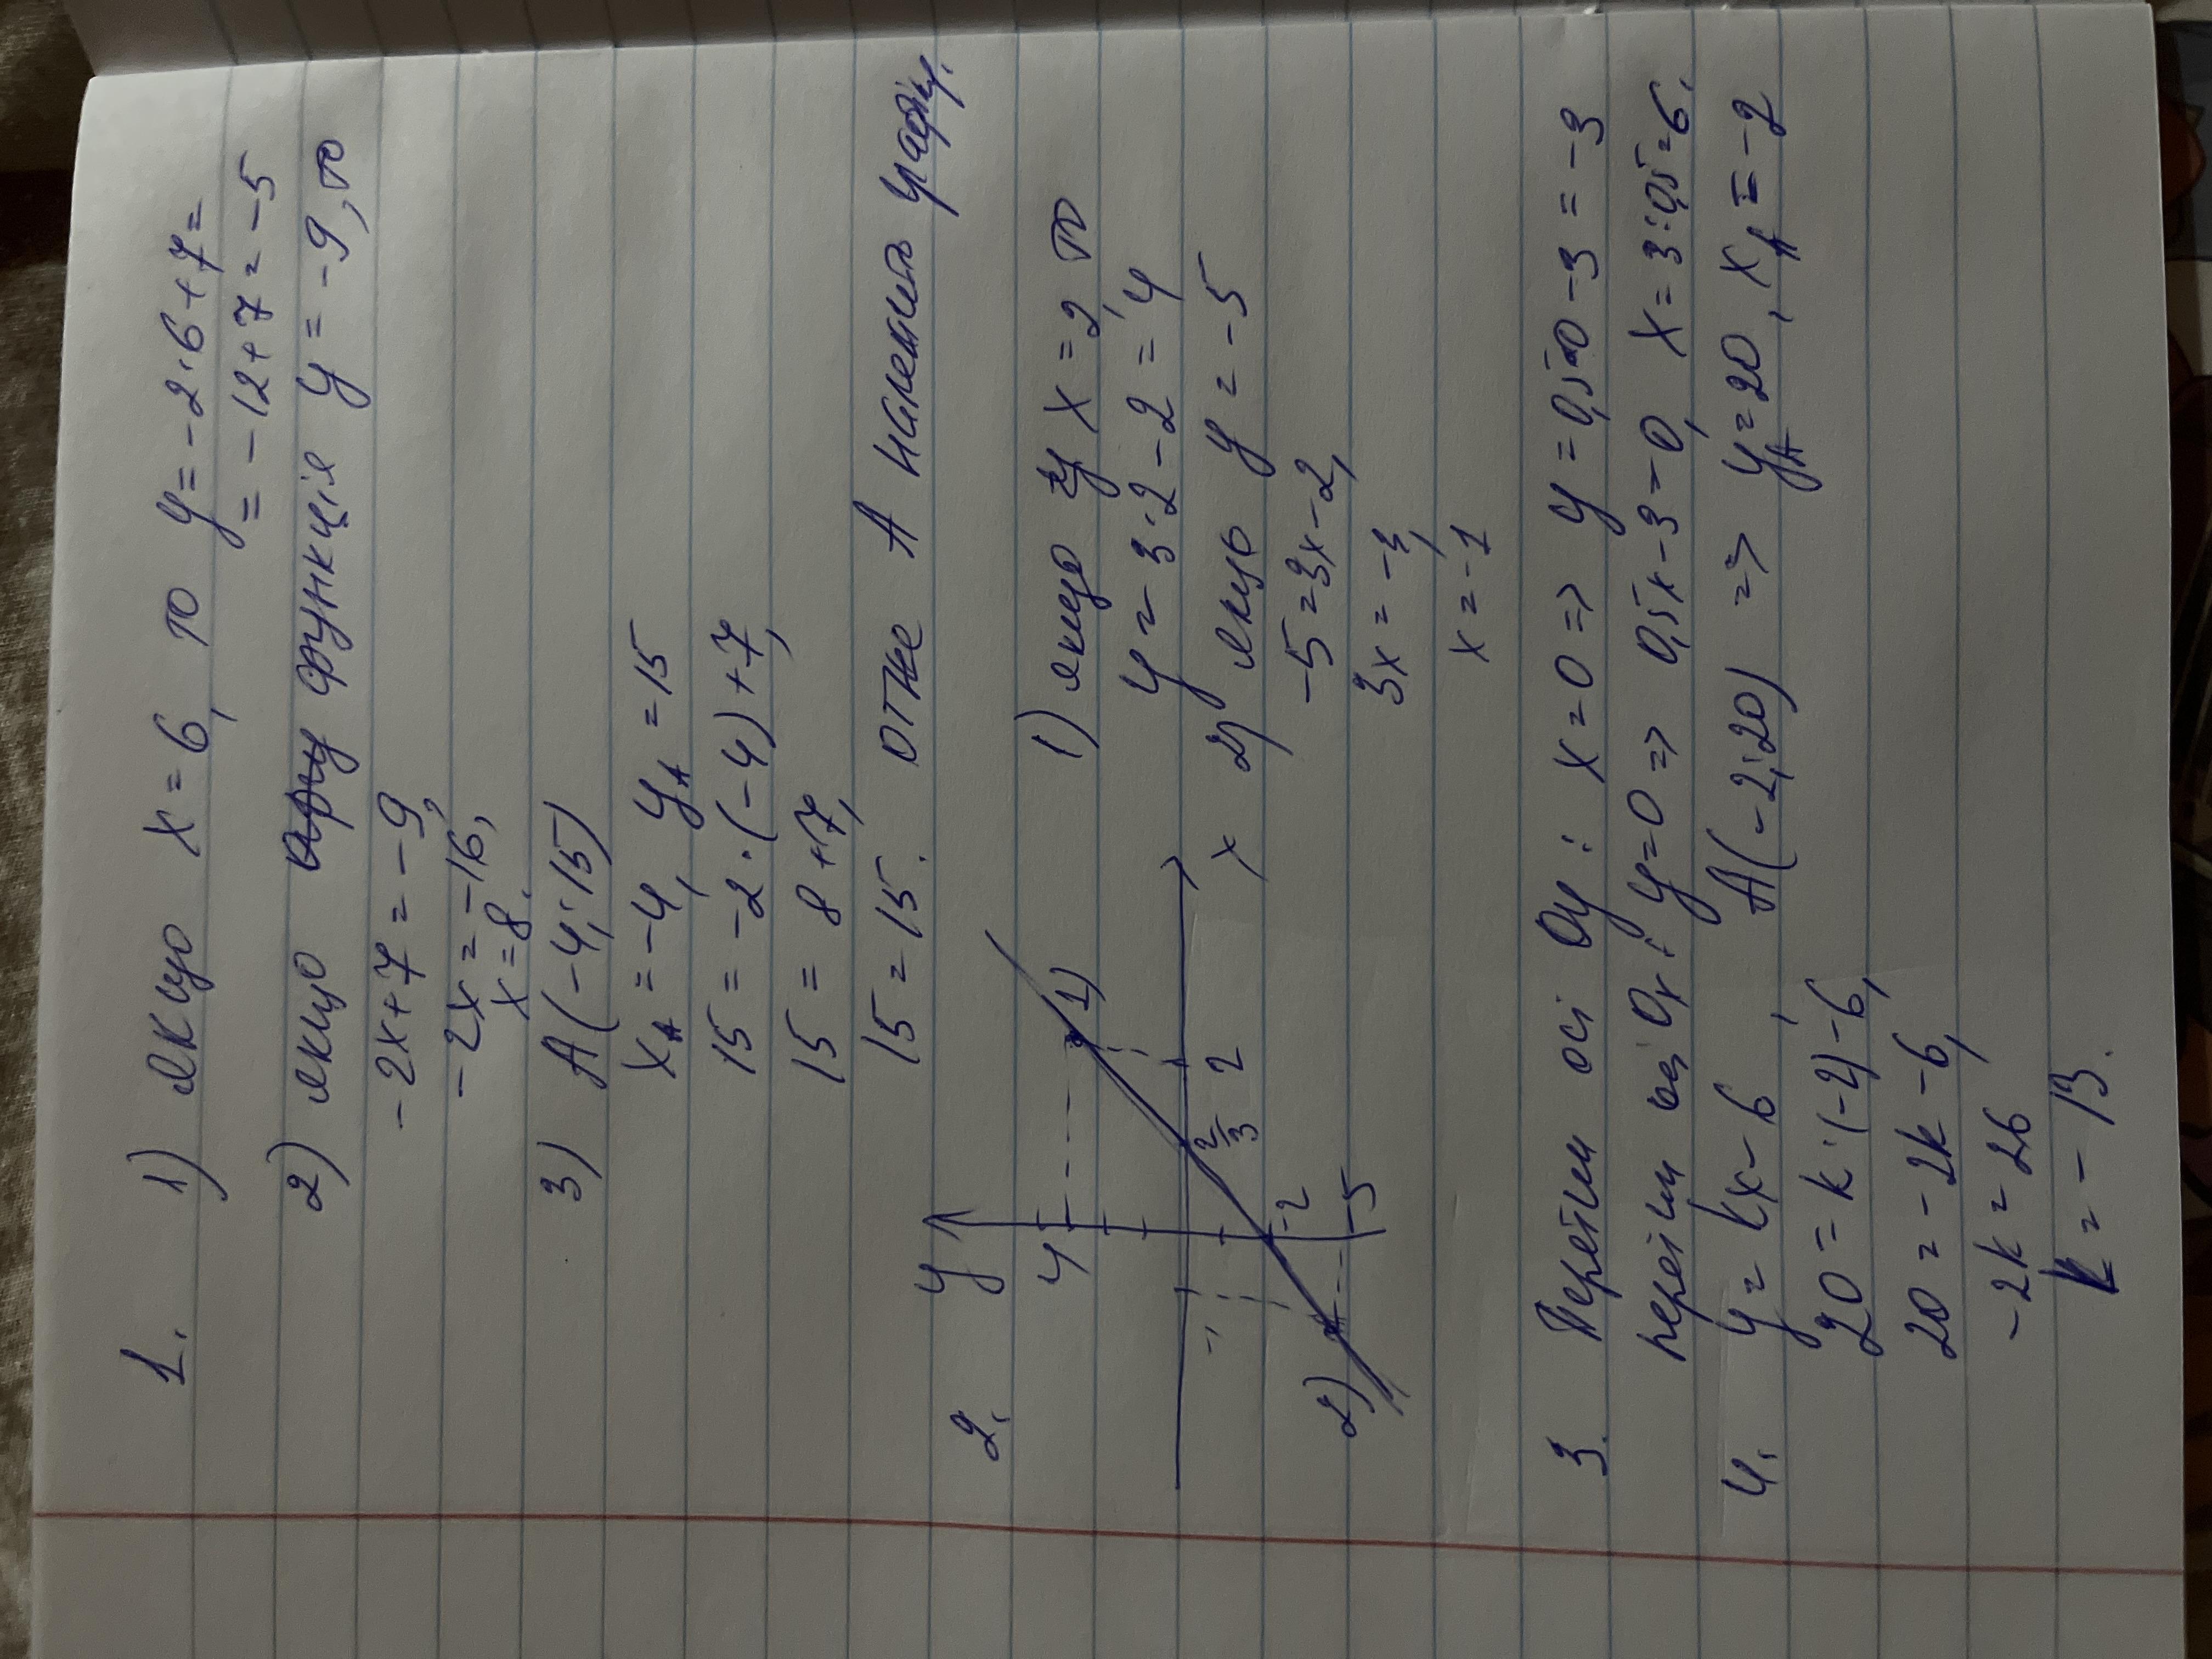 1. 1) якщо x = 6, то y = -2·6+7 =
= -12+7 = -5
2) якщо функція y = -9, то
-2x+7 = -9,
-2x = -16,
x = 8.
3) A(-4;15)
xA = -4, yA = 15
15 = -2·(-4)+7,
15 = 8+7,
15 = 15. отже A належить графіку.
2.
y
4
1)
x
-1
2/3
2
-2
-5
2)
1) якщо x = 2, то
y = 3·2-2 = 4
2) якщо y = -5
-5 = 3x-2,
3x = -3,
x = -1
3. Перетин осі Oy: x=0 => y = 0,5·0-3 = -3
перетин осі Ox: y=0 => 0,5x-3=0, x = 3:0,5=6.
4. y = kx-6, A(-2;20) => yA=20, xA=-2
20 = k·(-2)-6,
20 = -2k-6,
-2k = 26
k = -13.